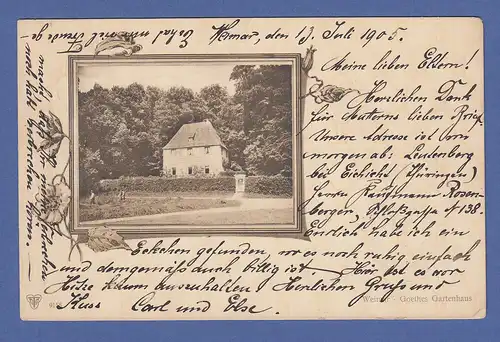 Weimar, den 13. Juli 1905.
Meine lieben Eltern!
Herzlichen Dank
für Mutterns lieben Brief.
Unsere Adresse ist von
morgen ab: Leutenberg
bei Eichicht (Thüringen)
Kaufmann Rosen-
bergen, Schloßgasse # 138.
Endlich habt ich ein
Eckchen gefunden, wo es noch ruhig einfach
und demgemäß auch billig ist. — Hier ist es vor
Hitze kaum auszuhalten. Herzlichen Gruß und
Kuss Carl und Else.
hat mir viel Freude ge-
macht
Weimar - Goethes Gartenhaus